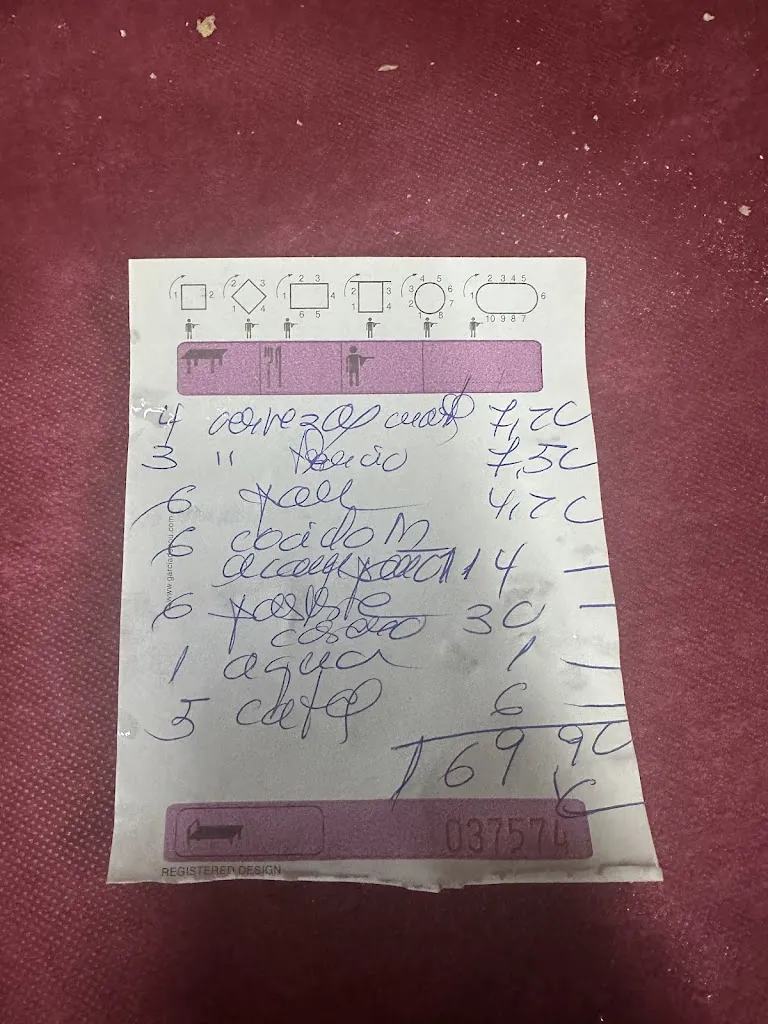 1 2
2 3
1 4
2 3
1 4
6 5
2 3
1 4
4 5
3 6
2 7
1 8
2 3 4 5
1 6
10 9 8 7
4 cervezas 7,20
3 " tercio 7,50
6 pan 4,20
6 cocido M
114 —
6 postre
casero 30 —
1 agua 1 —
5 cafe 6 —
169 90
€
037574
REGISTERED DESIGN